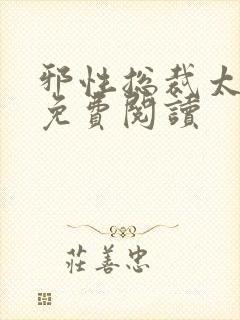 邪性总裁太
免費閱讀
莊善忠